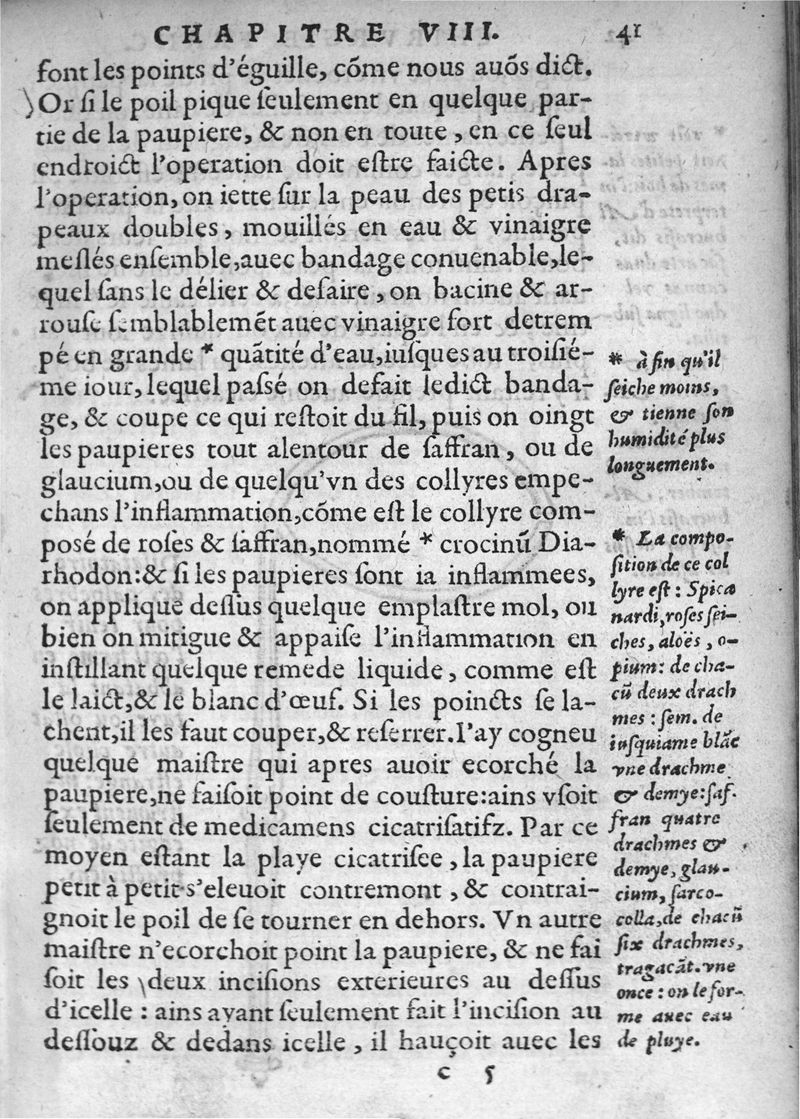 CHAPITRE VIII. 41
ſont les points d'éguille, cõme nous auõs dict.
Or ſi le poil pique ſeulement en quelque par-
tie de la paupiere, & non en toute, en ce ſeul
endroict l'operation doit eſtre faicte. Apres
l'operation, on iette ſur la peau des petis dra-
peaux doubles, mouillés en eau & vinaigre
meſlés enſemble, auec bandage conuenable, le-
quel ſans le délier & defaire, on bacine & ar-
rouſe ſemblablemẽt auec vinaigre fort detrem
pé en grande * quãtité d'eau, iuſques au troiſié-
me iour, lequel paſsé on defait ledict banda-
ge, & coupe ce qui reſtoit du fil, puis on oingt
les paupieres tout alentour de ſaffran, ou de
glaucium, ou de quelqu'vn des collyres empe-
chans l'inflammation, cõme eſt le collyre com-
posé de roſes & ſaffran, nommé * crocinũ Dia-
rhodon: & ſi les paupieres ſont ia inflammees,
on applique deſſus quelque emplaſtre mol, ou
bien on mitigue & appaiſe l'inflammation en
inſtillant quelque remede liquide, comme eſt
le laict, & le blanc d'œuf. Si les poincts ſe la-
chent, il les faut couper, & reſerrer. I'ay cogneu
quelque maiſtre qui apres auoir ecorché la
paupiere, ne faiſoit point de couſture: ains vſoit
ſeulement de medicamens cicatriſatifz. Par ce
moyen eſtant la playe cicatriſee, la paupiere
petit à petit s'eleuoit contremont, & contrai-
gnoit le poil de ſe tourner en dehors. Vn autre
maiſtre n'ecorchoit point la paupiere, & ne fai
ſoit les \deux inciſions exterieures au deſſus
d'icelle : ains ayant ſeulement fait l'inciſion au
deſſouz & dedans icelle, il hauçoit auec les
c 5
* à fin qu'il
ſeiche moins,
& tienne ſon
humidité plus
longuement.
* La compo-
ſition de ce col
lyre eſt : Spica
nardi, roſes ſei-
ches, aloës, o-
pium: de cha-
cũ deux drach
mes : ſem. de
iuſquiame blãc
vne drachme
& demye: ſaf-
fran quatre
drachmes &
demye, glau-
cium, ſarco-
colla, de chacũ
ſix drachmes,
tragacãt. vne
once : on le for-
me auec eau
de pluye.